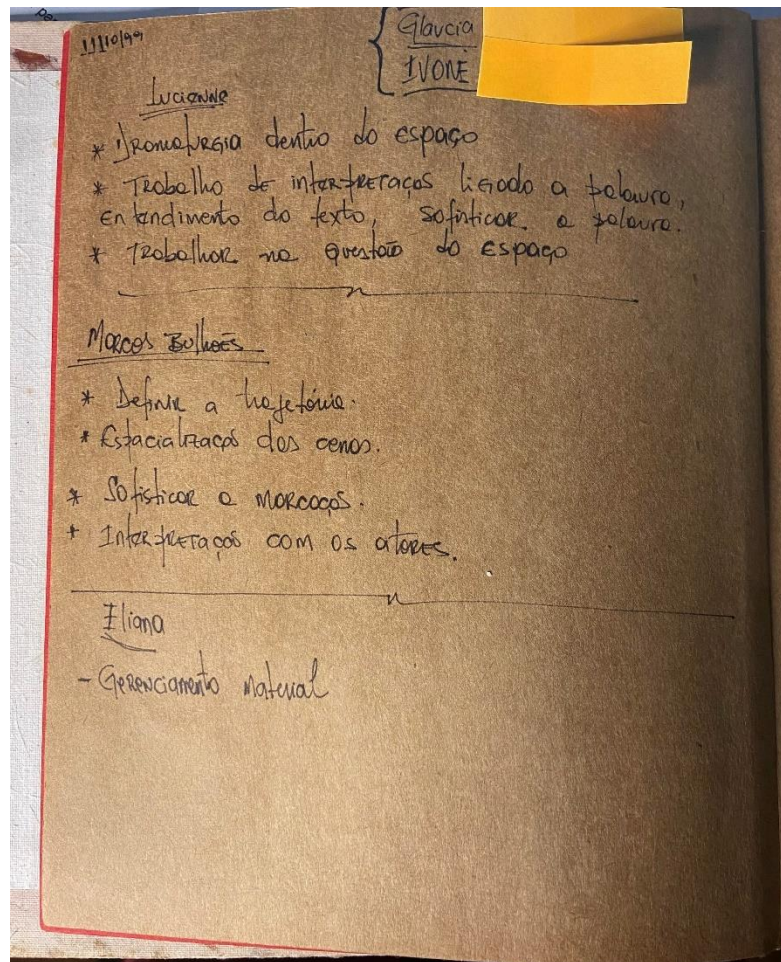 11/10/99
Glaucia
IVONE
Lucienne
* Dramaturgia dentro do espaço
* Trabalho de interpretação ligado a palavra,
entendimento do texto, sofisticar a palavra.
* Trabalhar na questão do espaço
Marcos Bulhões
* Definir a trajetória.
* Espacialização das cenas.
* Sofisticar a marcação.
* Interpretação com os atores.
Eliana
- Gerenciamento Material